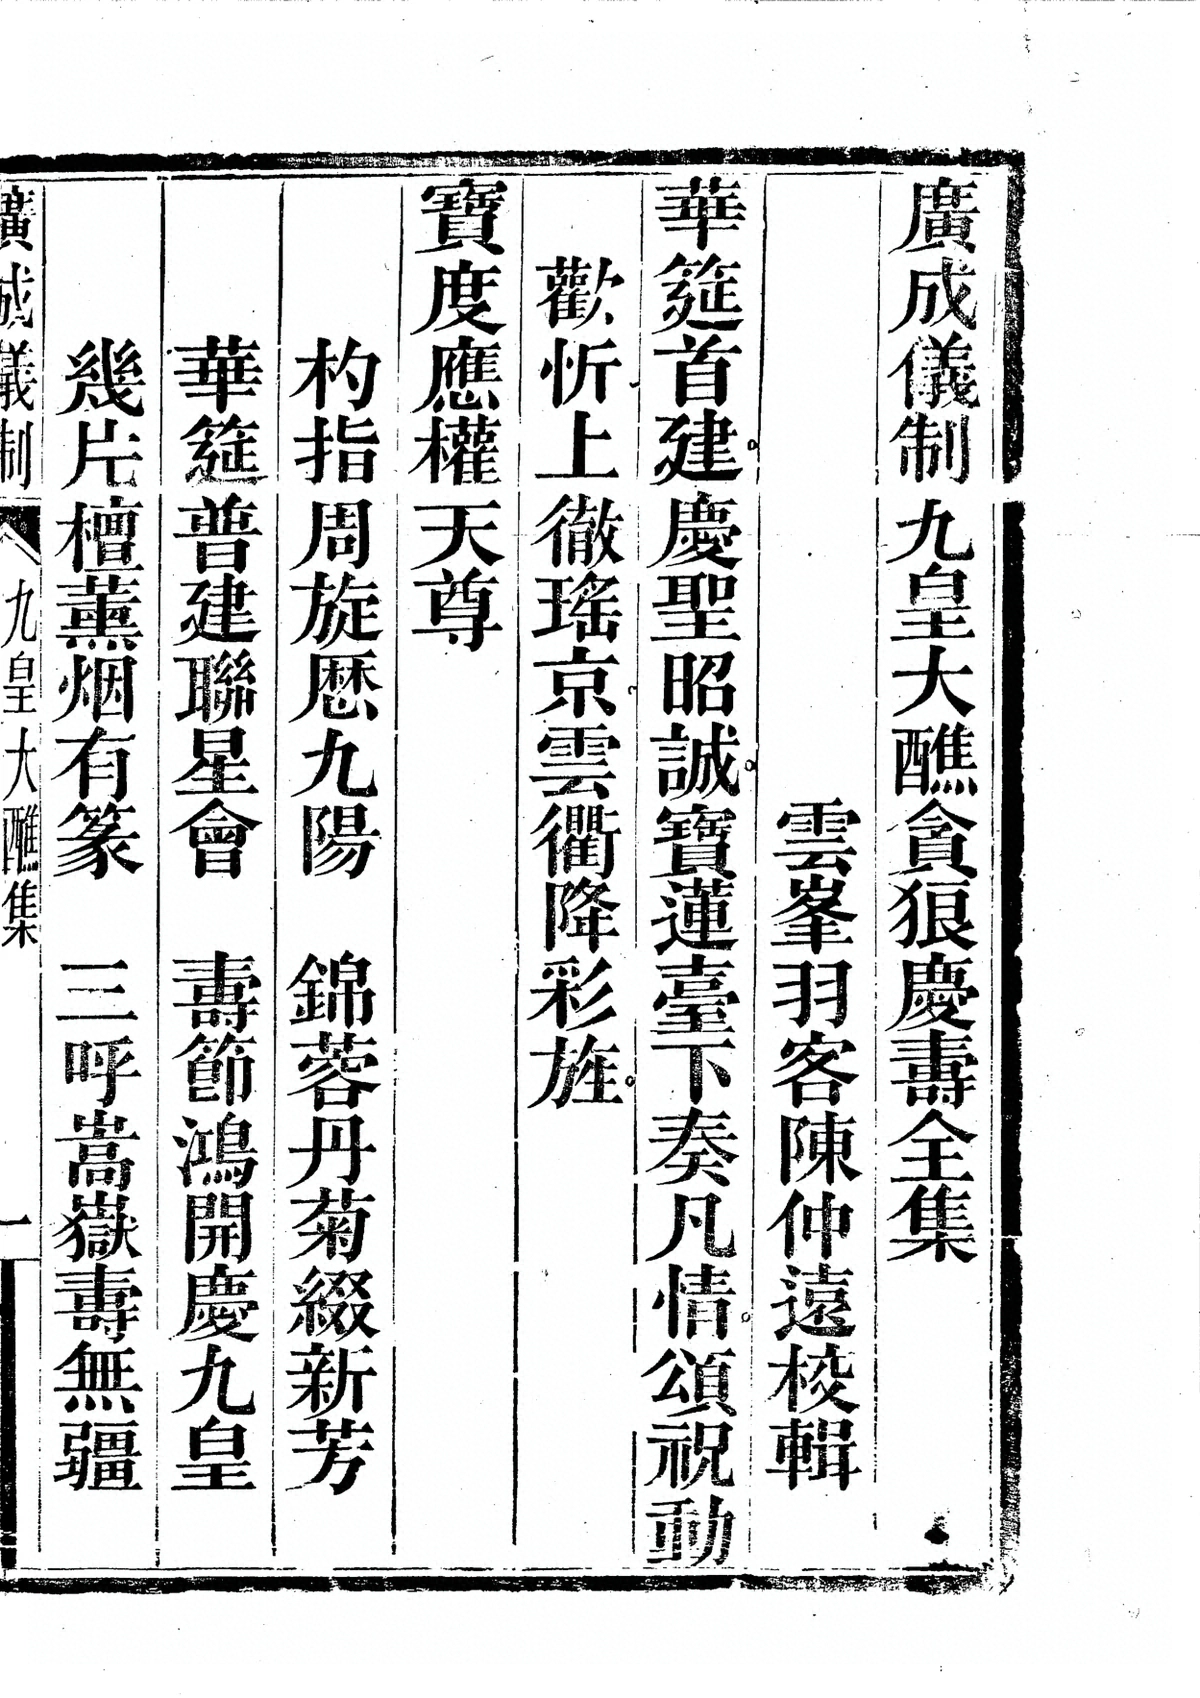 廣成儀制九皇大醮貪狼慶壽全集
雲峯羽客陳仲遠校輯
華筵首建慶聖昭誠寶蓮臺下奏凡情頌祝動
歡忻上徹瑤京雲衢降彩旌
寶度應權天尊
杓指周旋歷九陽　錦蓉丹菊綴新芳
華筵普建聯星會　壽節鴻開慶九皇
幾片檀薰烟有篆　三呼嵩嶽壽無疆
廣成儀制　九皇大醮集　一